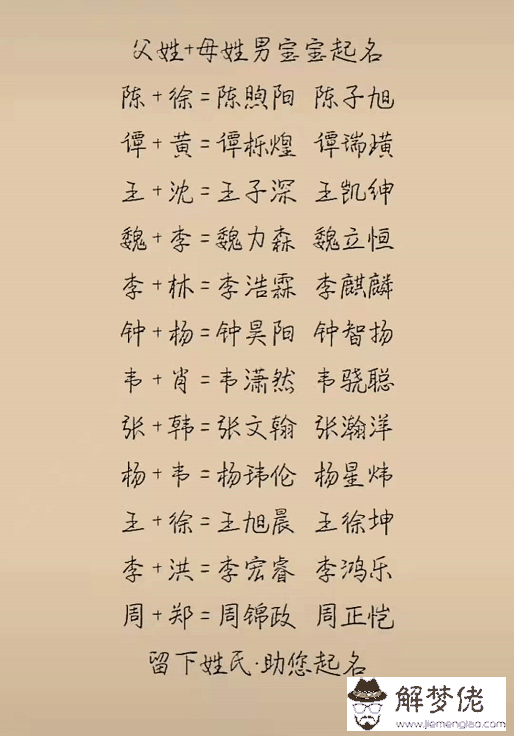 父姓+母姓男宝宝起名
陈+徐=陈煦阳 陈子旭
谭+黄=谭栎煌 谭瑞璜
王+沈=王子深 王凯绅
魏+李=魏力森 魏立恒
李+林=李浩霖 李麒麟
钟+杨=钟昊阳 钟智扬
韦+肖=韦潇然 韦骁聪
张+韩=张文翰 张瀚洋
杨+韦=杨玮伦 杨星炜
王+徐=王旭晨 王徐坤
李+洪=李宏睿 李鸿乐
周+郑=周锦政 周正恺
留下姓氏·助您起名
解梦佬
www.jiemenglao.com